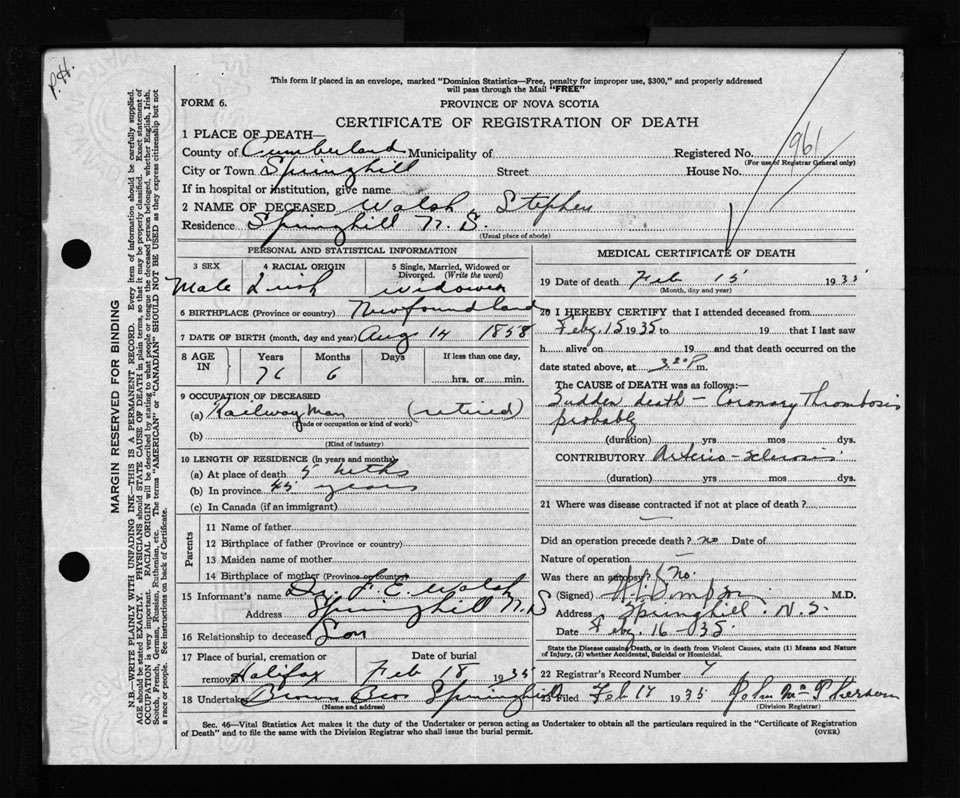 P.H.
This form if placed in an envelope, marked "Dominion Statistics—Free, penalty for improper use, $300," and properly addressed
will pass through the Mail "FREE"
FORM 6.
PROVINCE OF NOVA SCOTIA
CERTIFICATE OF REGISTRATION OF DEATH
1 PLACE OF DEATH—
County of Cumberland Municipality of Registered No. 961
(For use of Registrar General only)
City or Town Springhill Street House No.
If in hospital or institution, give name
2 NAME OF DECEASED Walsh, Stephen
Residence Springhill N. S.
(Usual place of abode)
PERSONAL AND STATISTICAL INFORMATION
3 SEX 4 RACIAL ORIGIN 5 Single, Married, Widowed or Divorced. (Write the word)
Male Irish Widower
6 BIRTHPLACE (Province or country) Newfoundland
7 DATE OF BIRTH (month, day and year) Aug 14 1858
8 AGE IN Years Months Days If less than one day,
76 6 hrs. or min.
9 OCCUPATION OF DECEASED
(a) Railway Man (retired)
(Trade or occupation or kind of work)
(b)
(Kind of industry)
10 LENGTH OF RESIDENCE (in years and months)
(a) At place of death 5 mths
(b) In province 45 years
(c) In Canada (if an immigrant)
Parents
11 Name of father
12 Birthplace of father (Province or country)
13 Maiden name of mother
14 Birthplace of mother (Province or country)
15 Informant's name Dr. F. C. Walsh
Address Springhill N. S
16 Relationship to deceased Son
17 Place of burial, cremation or Date of burial
removal Halifax Feb 18 1935
18 Undertaker Brown Bros Springhill
(Name and address)
MEDICAL CERTIFICATE OF DEATH
19 Date of death Feb 15 1935
(Month, day and year)
20 I HEREBY CERTIFY that I attended deceased from
Feby. 15 1935 to 19 that I last saw
h alive on 19 and that death occurred on the
date stated above, at 3 m.
The CAUSE OF DEATH was as follows:—
Sudden death — Coronary Thrombosis
probably
(duration) yrs mos dys.
CONTRIBUTORY Arterio-sclerosis
(duration) yrs. mos. dys.
21 Where was disease contracted if not at place of death?
Did an operation precede death? no Date of
Nature of operation —
Was there an autopsy? No.
(Signed) Simpson M.D.
Address Springhill. N. S.
Date Feby. 16 – 35.
State the Disease causing Death, or in death from Violent Causes, state (1) Means and Nature
of Injury, (2) whether Accidental, Suicidal or Homicidal.
22 Registrar's Record Number 7
23 Filed Feb 17 1935 John
(Division Registrar)
Sec. 46—Vital Statistics Act makes it the duty of the Undertaker or person acting as Undertaker to obtain all the particulars required in the "Certificate of Registration
of Death" and to file the same with the Division Registrar who shall issue the burial permit.
(OVER)
MARGIN RESERVED FOR BINDING
N.B.—WRITE PLAINLY WITH UNFADING INK—THIS IS A PERMANENT RECORD. Every item of information should be carefully supplied.
AGE should be stated EXACTLY. PHYSICIANS should STATE CAUSE OF DEATH in plain terms, so that it may be properly classified. Exact statement of
OCCUPATION is very important. RACIAL ORIGIN will be described by stating to what people or tongue the deceased person belonged, whether English, Irish,
Scotch, French, German, Russian, Ruthenian, etc. The terms "AMERICAN" or "CANADIAN" SHOULD NOT BE USED as they express citizenship but not
a race or people. See instructions on back of Certificate.